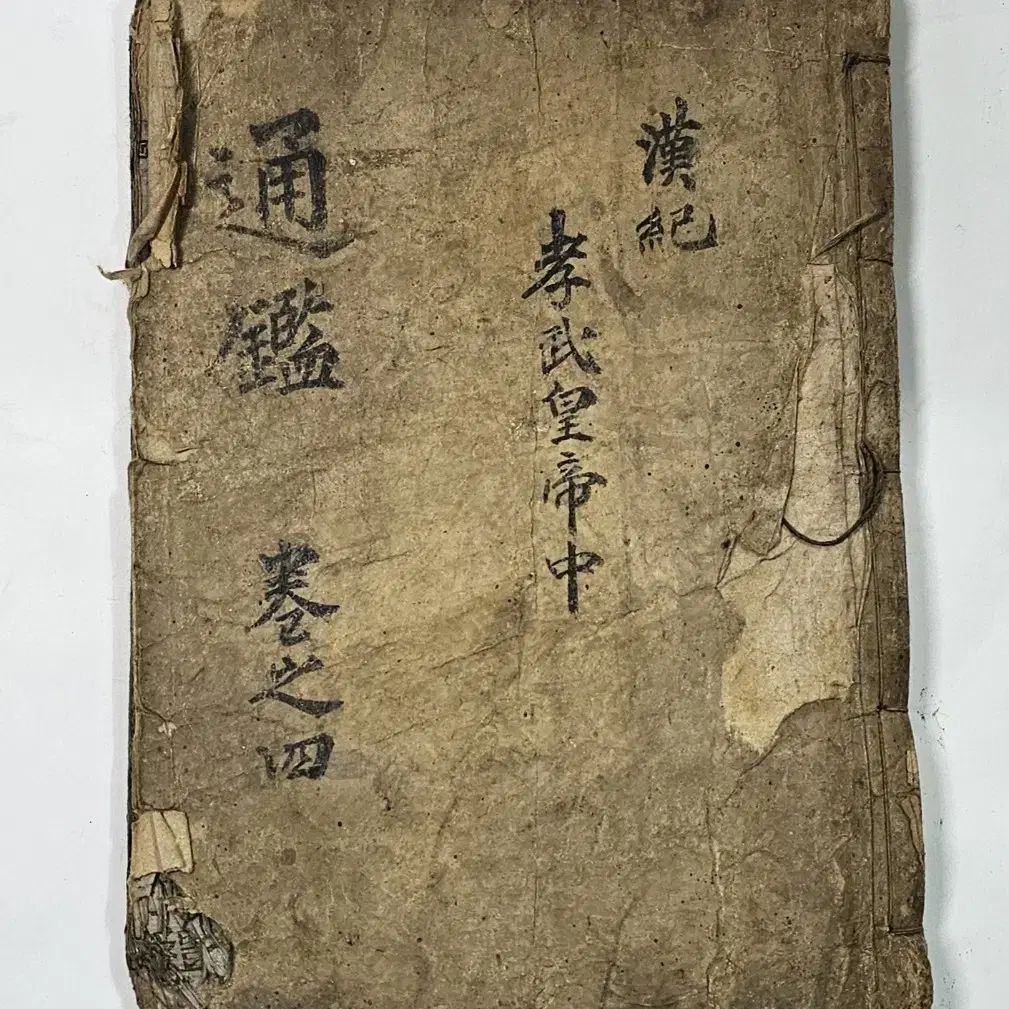 漢紀
孝武皇帝中
通鑑 卷之四